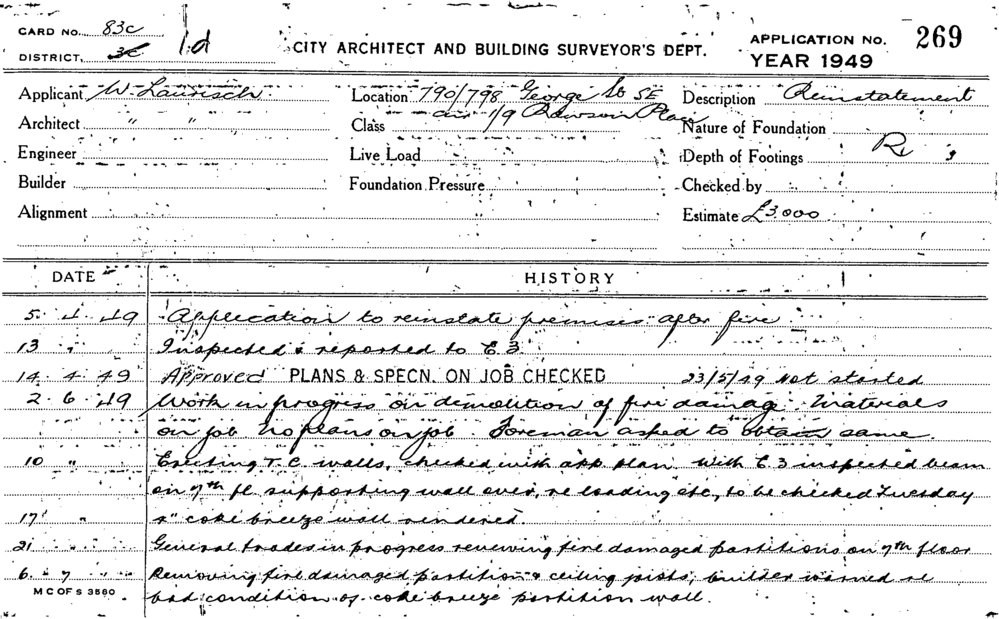 CARD NO. 83c
DISTRICT. 3c 1d
CITY ARCHITECT AND BUILDING SURVEYOR'S DEPT.
APPLICATION NO. 269
YEAR 1949
Applicant W. Laurisch Location 790/798 George St SE Description Reinstatement
Architect " " Class 1/9 Rawson Place Nature of Foundation
Engineer Live Load Depth of Footings
Builder Foundation Pressure Checked by
Alignment Estimate £3,000
DATE HISTORY
5. 4. 49 Application to reinstate premises after fire
13 " Inspected & reported to E3.
14. 4. 49 Approved PLANS & SPECN. ON JOB CHECKED 23/5/49 Not started
2. 6. 49 Work in progress on demolition of fire damag. Materials
on job No plans on job. Foreman asked to obtain same.
10 " Erecting T.C. walls, checked with app plan. With E3 inspected beam
on 7th fl. supporting wall over, re loading etc, to be checked Tuesday
17 " coke breeze wall rendered.
21 General trades in progress renewing fire damaged partitions on 7th floor
6. 7 " Removing fire damaged partition & ceiling joists, builder warned re
bad condition of coke breeze partition wall.
M C OF S 3560